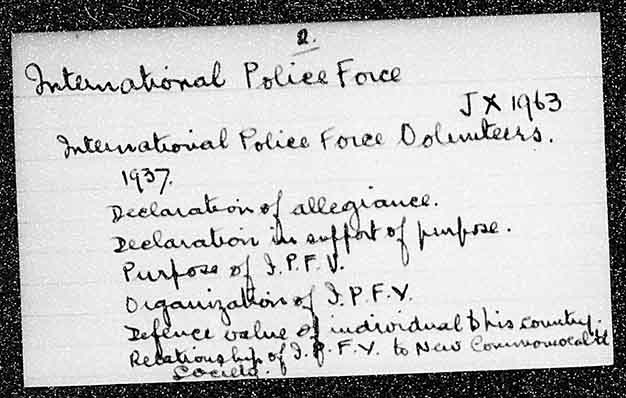 2.
International Police Force
JX 1963
International Police Force Volunteers.
1937.
Declaration of allegiance.
Declaration in support of purpose.
Purpose of I.P.F.V.
Organization of I.P.F.V.
Defence value of individual to his country.
Relationship of I.P.F.V. to New Commonwealth
Society.